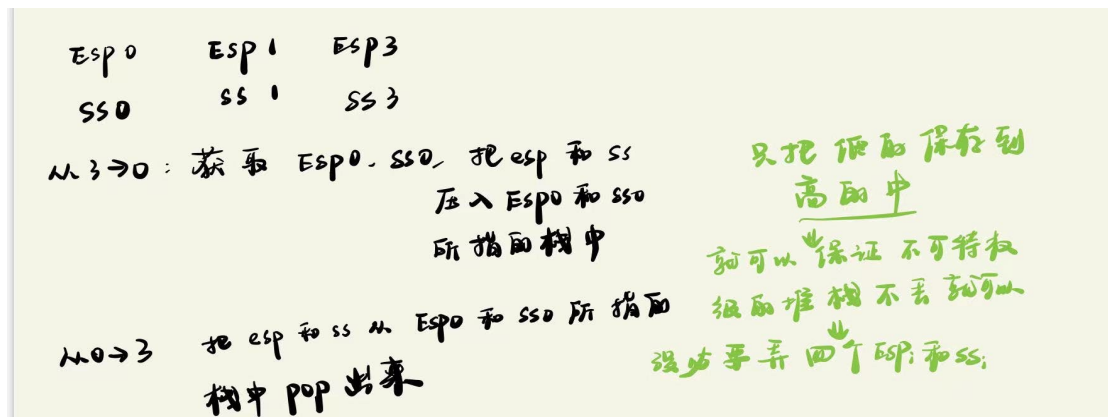 Esp0 Esp1 Esp3
SS0 SS1 SS3
从3→0：获取 Esp0、SS0，把esp和ss
压入Esp0和SS0
所指的栈中
从0→3 把esp和ss从Esp0和SS0所指的
栈中pop出来
只把低的保存到
高的中
就可以保证不可特权
级的堆栈不丢就可以
没必要弄四个ESPi和SSi